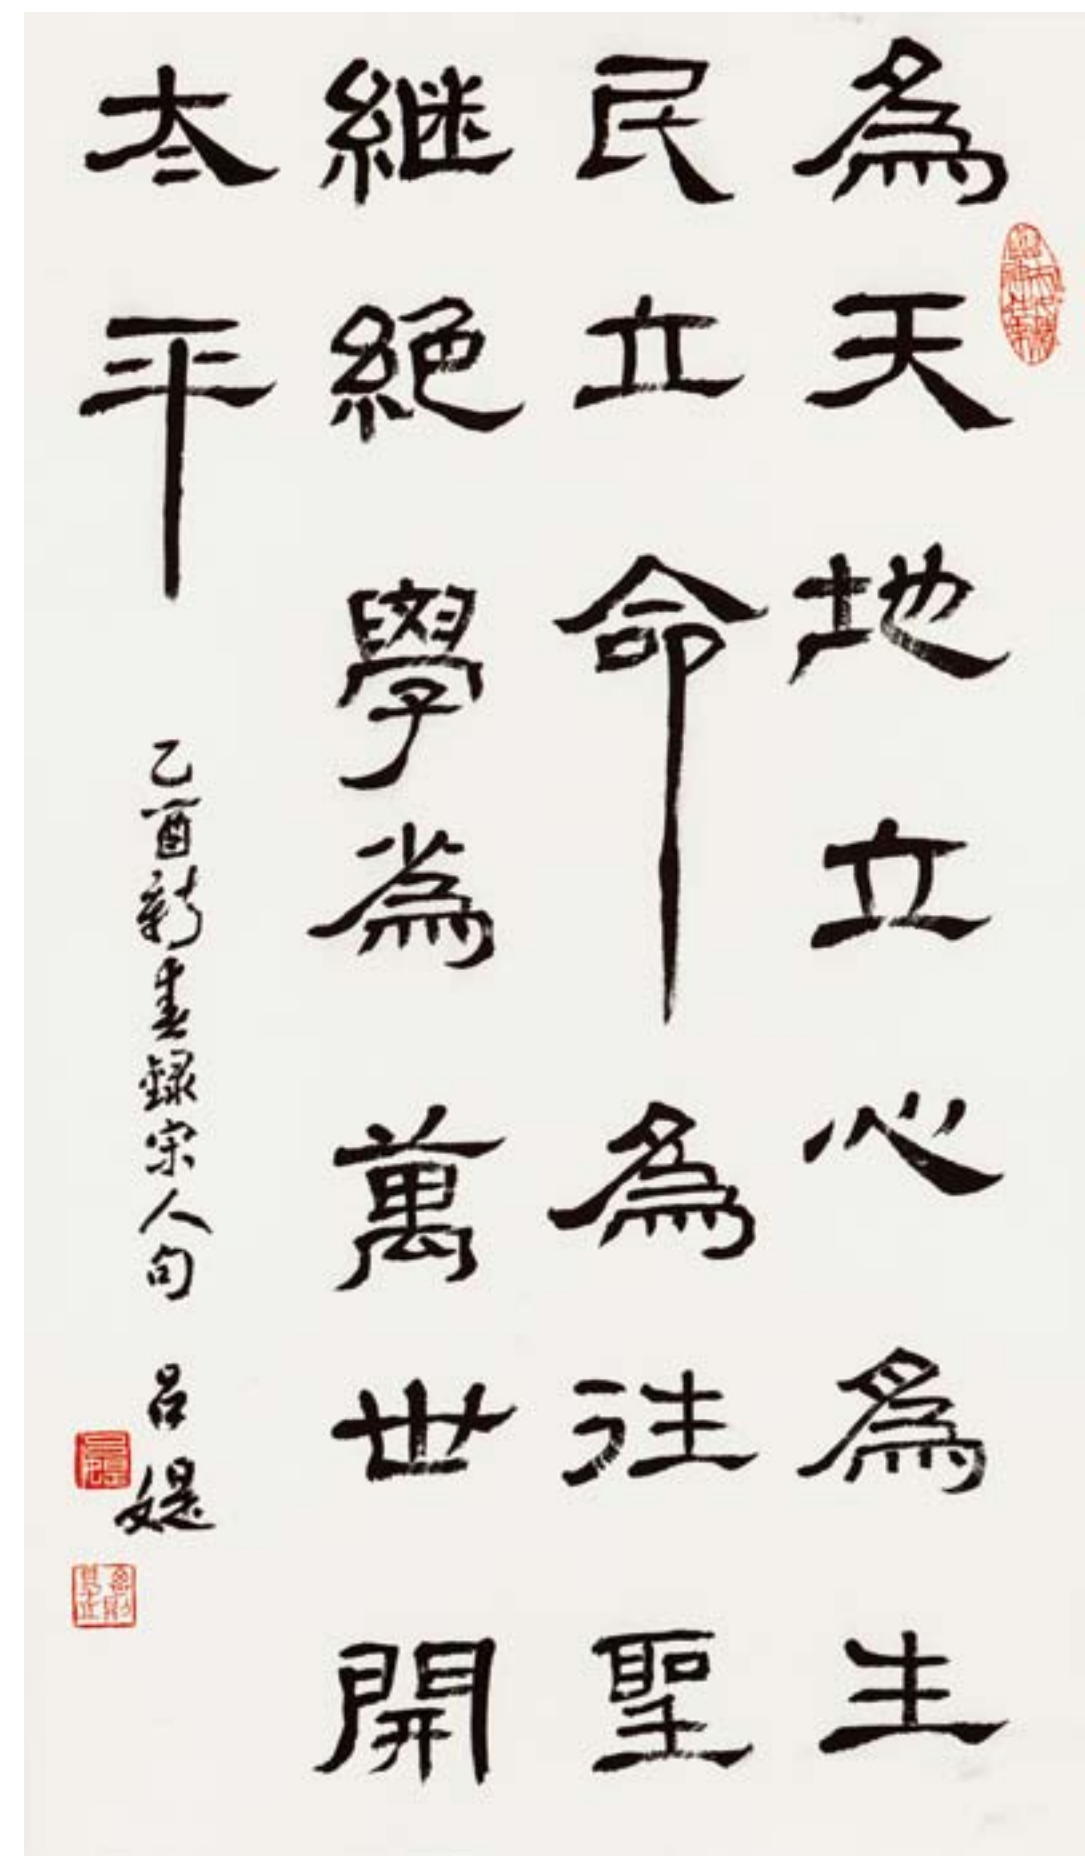 為天地立心為生
民立命為往聖
継絕學為萬世開
太平
乙酉新春錄宋人句 呂媞